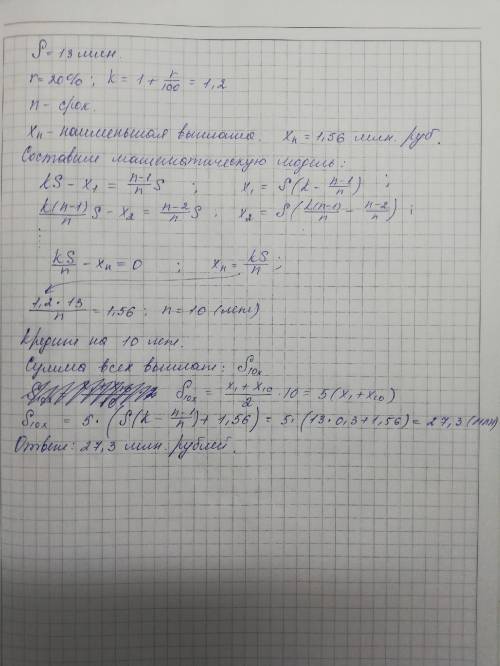 S = 13 млн.
r = 20%; k = 1 + r/100 = 1,2
n - срок.
xₙ - наименьшая выплата. xₙ = 1,56 млн. руб.
Составим математическую модель:
kS - x₁ = (n-1)/n S ; x₁ = S(k - (n-1)/n) ;
k(n-1)/n S - x₂ = (n-2)/n S ; x₂ = S(k(n-1)/n - (n-2)/n) ;
⋮
kS/n - xₙ = 0 ; xₙ = kS/n ;
1,2·13/n = 1,56 ; n = 10 (лет)
Кредит на 10 лет.
Сумма всех выплат: S₁₀ₓ
S₁₀ₓ = (x₁ + x₁₀)/2 · 10 = 5(x₁ + x₁₀)
S₁₀ₓ = 5·(S(k - (n-1)/n) + 1,56) = 5·(13·0,3 + 1,56) = 27,3 (млн)
Ответ: 27,3 млн. рублей.